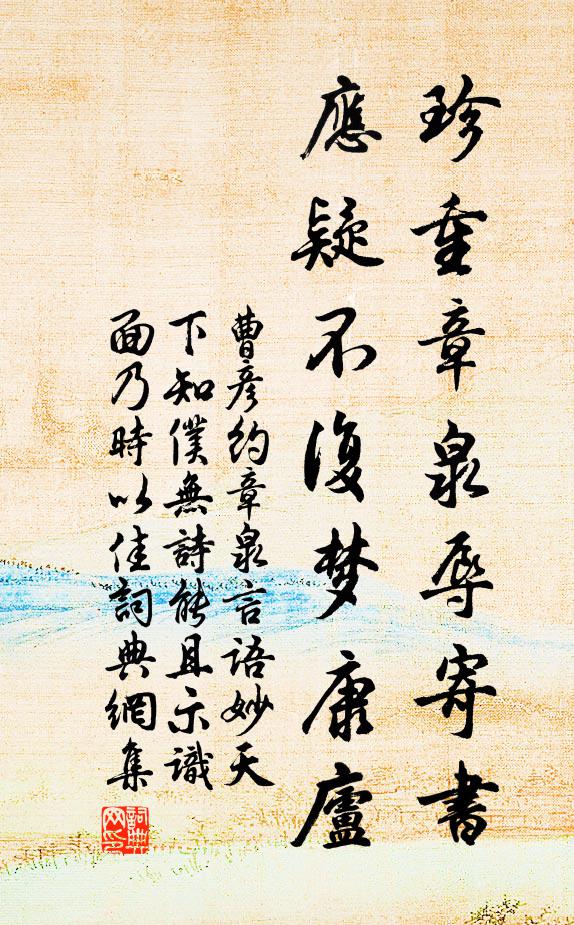 珍重章泉辱寄書
應疑不復梦康廬
曹彦約章泉言語妙天
下知僕無詩能且示識
面乃時以佳詞典網集
詞典
网